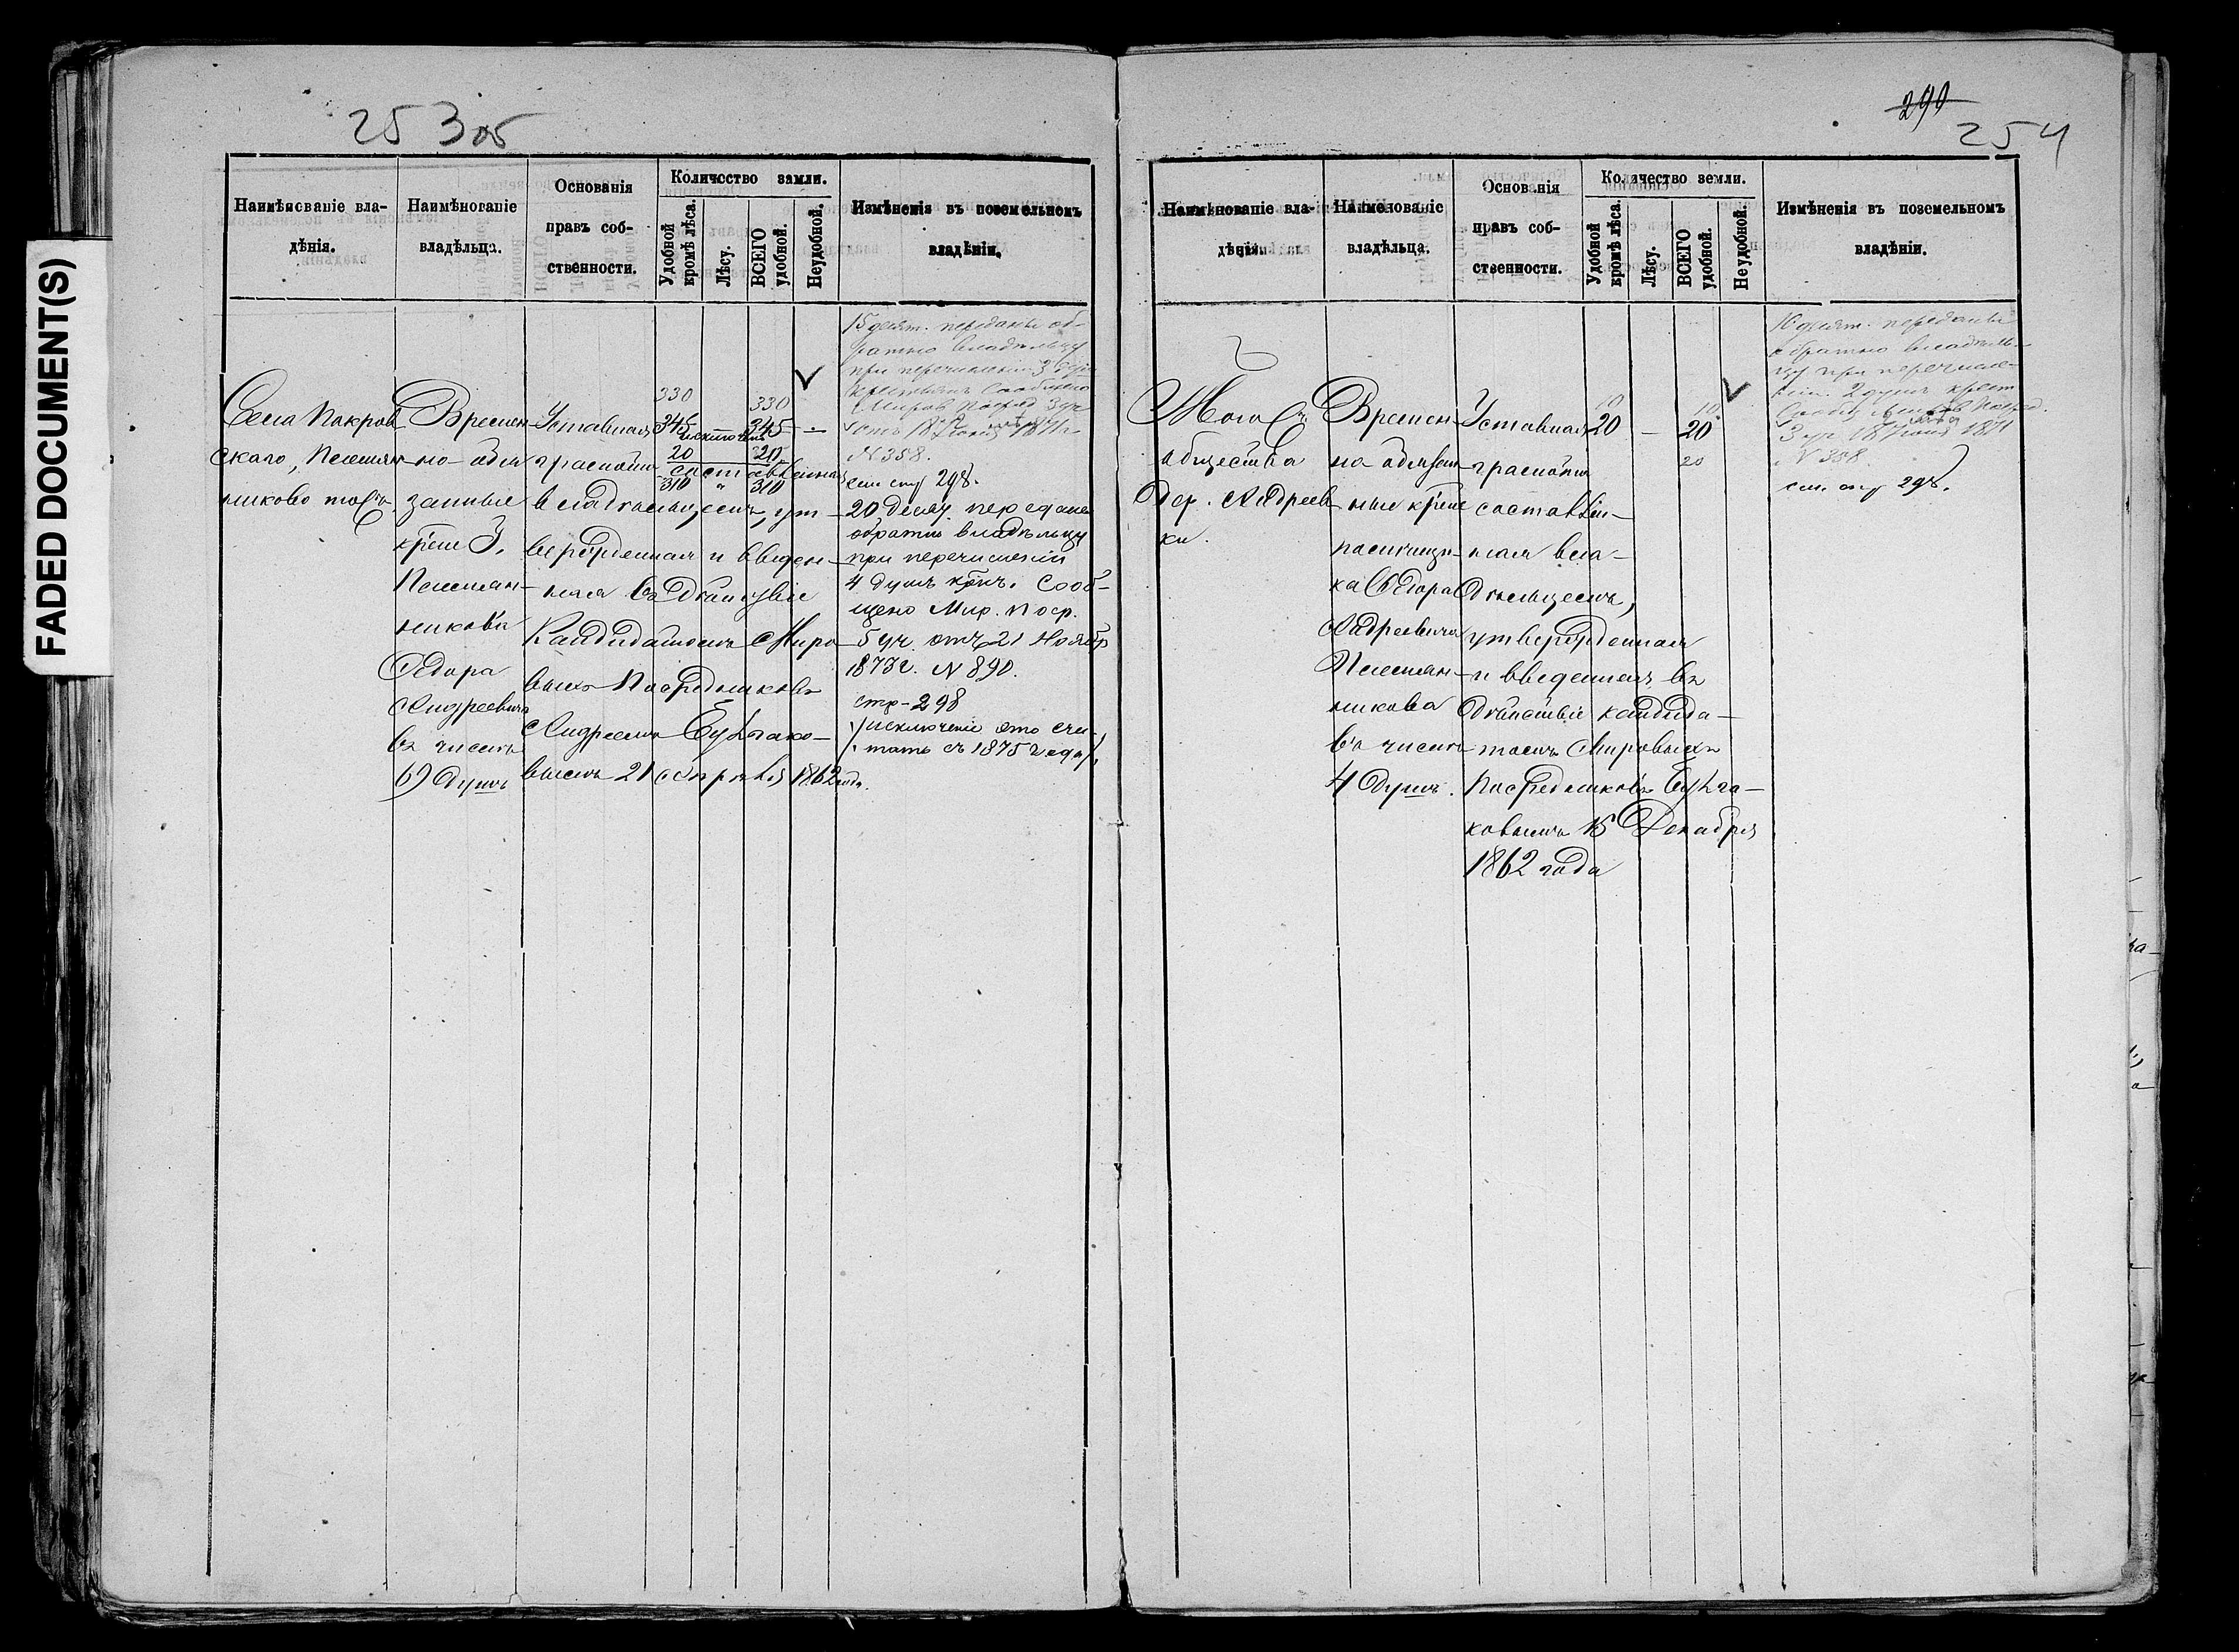 FADED DOCUMENT(S)
25 305
Наимѣнованіе вла-
дѣнія.
Наимѣнованіе
владѣльца.
Основанія
правъ соб-
ственности.
Количество земли.
Удобной
кромѣ лѣса.
Лѣсу.
ВСЕГО
удобной.
Неудобной.
Измѣненія въ поземельномъ
владѣніи.
Села Покров-
скаго, Племян-
никово тожъ
Времен-
но-обя-
занные
крест.
Племян-
никова
Ѳедора
Андреевича
въ числѣ
69 Душъ
Уставная
грамота
составленная
владѣльцемъ, ут-
вержденная и введен-
ная въ дѣйствіе
Кандидатомъ Миро-
выхъ Посредниковъ
Андреемъ Булгако-
вымъ 21 Апрѣля 1862 года.
330 330
345 345 —
исключено
20 20
310 " 310
15 десят. переданы об-
ратно владѣльцу
при перечисленіи 3 душ
крестьянъ Сообщено
Миров Посред 3 уч
отъ 18 Іюня 1871 г
N 358.
см стр 298.
20 десят. передано
обратно владѣльцу
при перечисленіи
4 душъ крест. Сооб-
щено Мир. Поср.
5 уч. отъ 21 Ноября
1873 г. N 890.
стр-298
исключеніе это счи-
тать съ 1875 года
290
254
Наимѣнованіе вла-
дѣнія.
Наимѣнованіе
владѣльца.
Основанія
правъ соб-
ственности.
Количество земли.
Удобной
кромѣ лѣса.
Лѣсу.
ВСЕГО
удобной.
Неудобной.
Измѣненія въ поземельномъ
владѣніи.
Того жъ
общества
Дер. Андреев-
ки.
Времен-
но-обязан-
ные крест
помѣщи-
ка Ѳедора
Андреевича
Племян-
никова
въ числѣ
4 Душъ.
Уставная
грамота
составлен-
ная вла-
дѣльцемъ,
утвержденная
и введенная въ
дѣйствіе кандида-
томъ Мировыхъ
Посредниковъ Булга-
ковымъ 15 Декабря
1862 года
10 10
20 — 20
20
10 десят. переданы
обратно владѣль-
цу при перечисле-
ніи 2 душъ крест
Сообщ Миров Посред.
3 уч 18 Іюня 1871
N 358
см. стр 298.